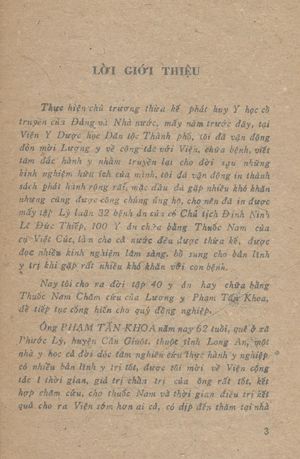 LỜI GIỚI THIỆU
Thực hiện chủ trương thừa kế phát huy Y học cổ
truyền của Đảng và Nhà nước, mấy năm trước đây, tại
Viện Y Dược học Dân tộc Thành phố, tôi đã vận động
đôn mời Lương y về công tác với Viện, chữa bệnh, viết
tâm đắc hành y nhằm truyền lại cho đời sau những
kinh nghiệm hữu ích của mình, tôi đã vận động in thành
sách phát hành rộng rãi, mặc dầu đã gặp nhiều khó khăn
nhưng cũng được công chúng ủng hộ, cho nên đã in được
mấy tập Lý luận 32 bệnh án của cố Chủ tịch Đinh Ninh
Lê Đức Thiếp, 100 Y án chữa bằng Thuốc Nam của
cụ Việt Cúc, làm cho cả nước đều được thừa kế, được
đọc nhiều kinh nghiệm lâm sàng, bổ sung cho bản lĩnh
y trị khi gặp rất nhiều khó khăn với con bệnh.
Nay tôi cho ra đời tập 40 y án hay chữa bằng
Thuốc Nam Châm cứu của Lương y Phạm Tấn Khoa,
để tiếp tục cống hiến cho quý đồng nghiệp.
Ông PHẠM TẤN KHOA năm nay 62 tuổi, quê ở xã
Phước Lý, huyện Cần Giuộc, thuộc tỉnh Long An, một
nhà y học cả đời dốc tâm nghiên cứu thực hành y nghiệp
có nhiều bản lĩnh y trị tốt, được tôi mời về Viện cộng
tác 1 thời gian, giá trị chữa trị của ông rất tốt, kết
hợp châm cứu, cho thuốc Nam và thời gian điều trị kết
quả cho ra Viện sớm hơn ai cả, có dịp đến thăm tại nhà
3